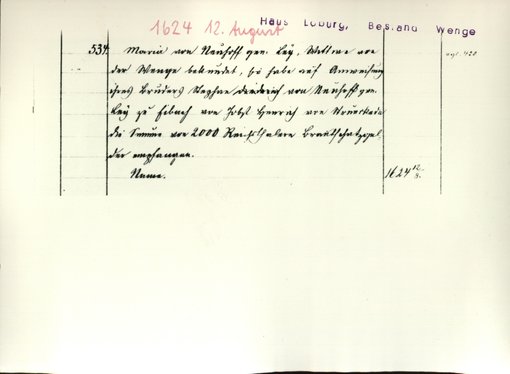 1624 12. August
Haus Loburg, Bestand Wenge
534. Maria von Neuhoff gen. Ley, Wittwe von
der Wenge bekundet, sie habe auf Anweisung
ihres Bruders Stephan Diederich von Neuhoff gen.
Ley zu Eibach von Jobst Henrich von
die Summe von 2000 Reichsthalern Brautschatzgel,
der empfangen.
Name.
1624 12/8.
vgl. 420.